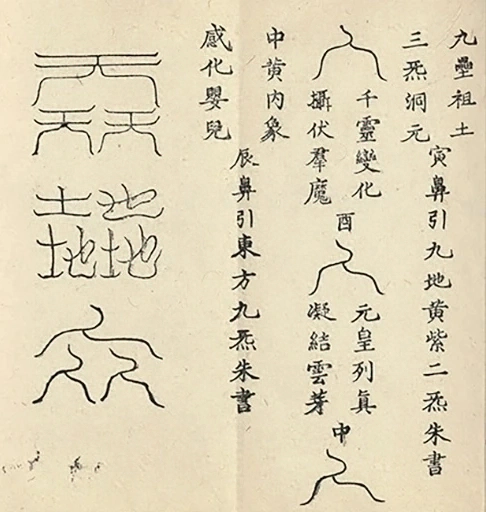 九壘祖土
三炁洞元
寅鼻引九地黃紫二炁朱書
千靈變化
攝伏羣魔
酉
元皇列真
凝結雲芽
中
中黃內象
感化嬰兒
辰鼻引東方九炁朱書